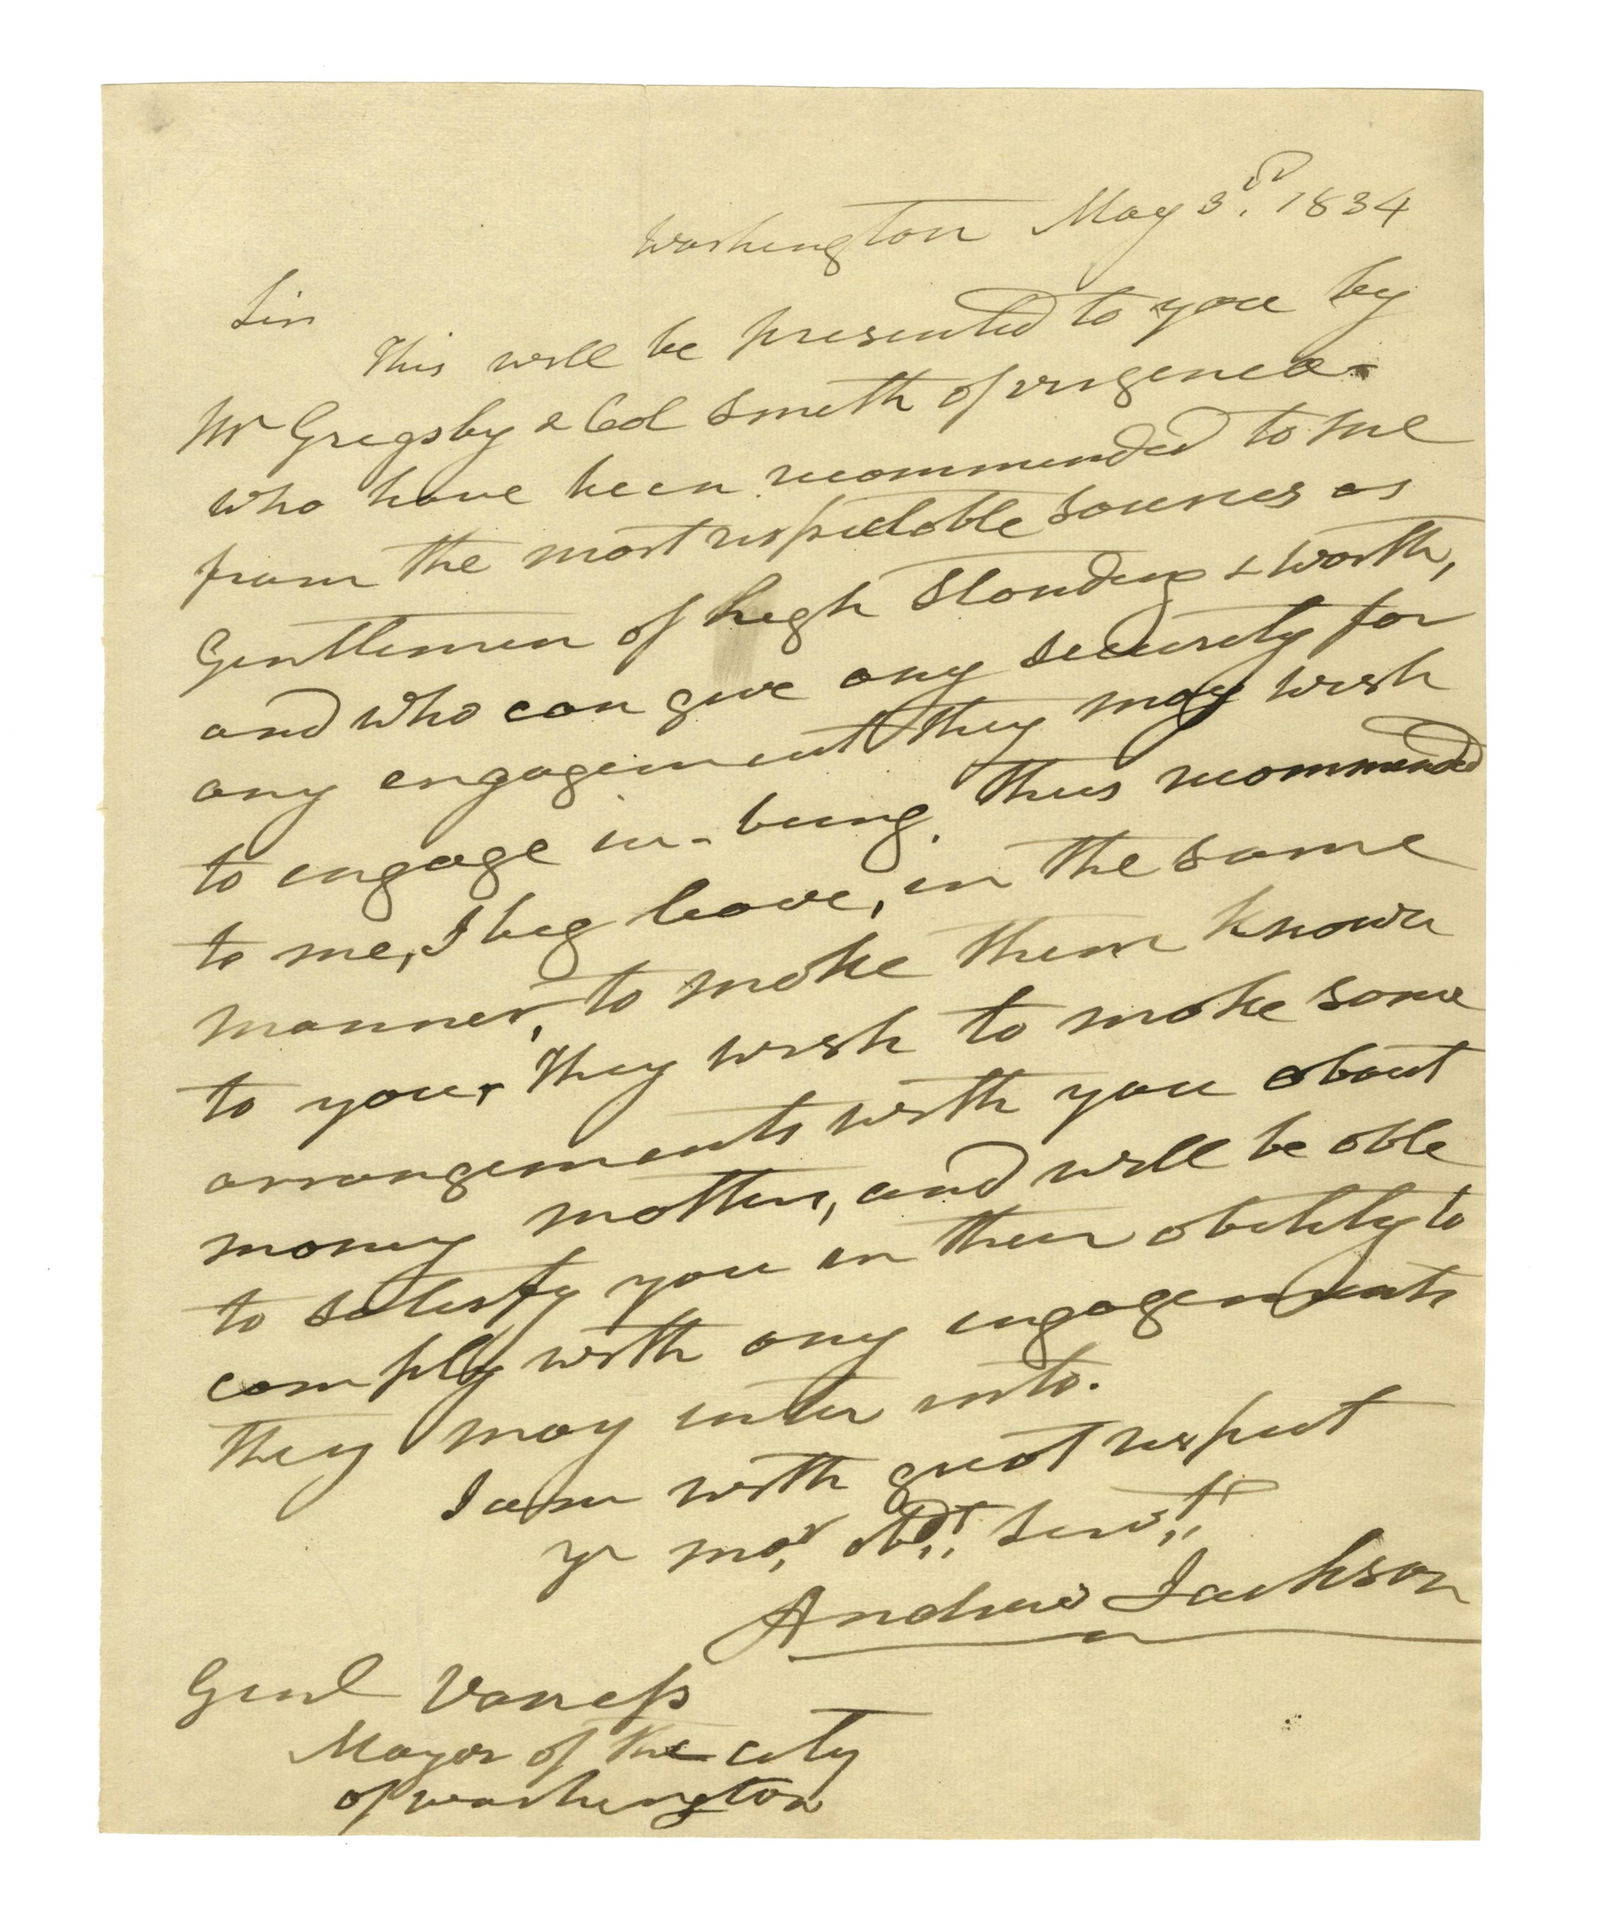 Washington May 3rd. 1834
Sir
This will be presented to you by
Mr Grigsby & Col Smith of virginia-
who have been recommended to me
from the most respectable sources as
Gentlemen of high standing & worth,
and who can give any security for
any engagement they may wish
to engage in- being thus recommended
to me, I beg leave, in the same
manner, to make them known
to you. They wish to make some
arrangements with you about
money matters, and will be able
to satisfy you in their ability to
comply with any engagements
they may enter into.
I am with great respect
yr mo. obdt. servt.
Andrew Jackson
Genl Vaness
Mayor of the city
of washington